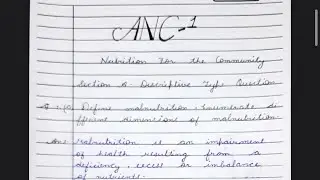 ANC-1
Nutrition For the Community
Section B - Descriptive Type Question
Define malnutrition. Enumerate di
fferent dimensions of malnutrition.
Ans: Malnutrition is an impairment
of health resulting from a
deficiency, excess or imbalance
of nutrients.